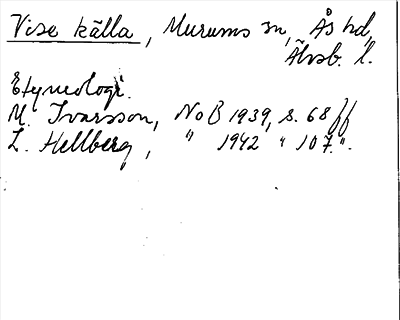 Vise källa, Murums sn, Ås hd,
Älvsb. l.
Etymologi.
M. Ivarsson, NoB 1939, s. 68 ff
L. Hellberg, " 1942 " 107.".